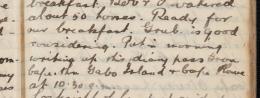 breakfast, & watered
about 50 horses. Ready for
our breakfast. Grub is good
considering. Put in morning
writing up this diary pass Green
Cape then Gabo Island & Cape Howe
at 10.30 a.m.